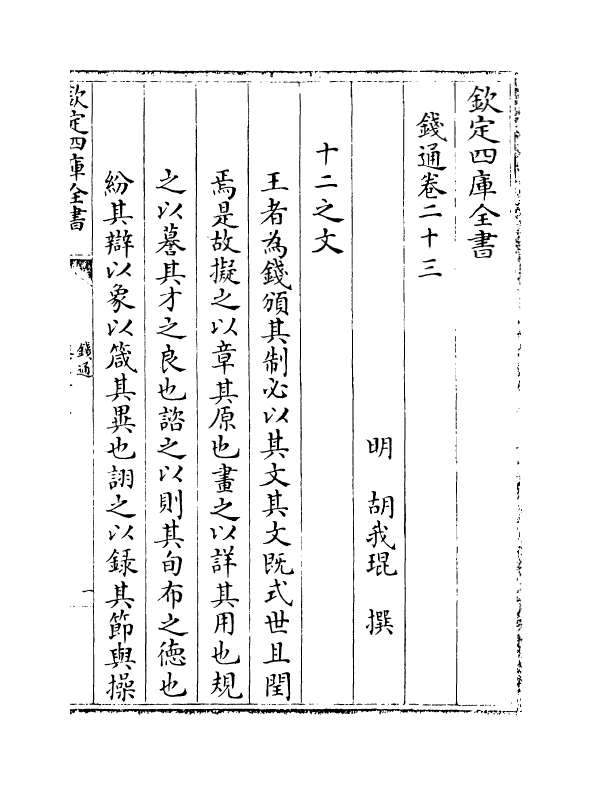 欽定四庫全書
錢通卷二十三
明 胡我琨 撰
十二之文
王者為錢頒其制必以其文其文既式世且閏
焉是故擬之以章其原也畫之以詳其用也規
之以謩其才之良也諮之以則其旬布之德也
紛其辯以象以箴其異也詡之以録其節與操
欽定四庫全書
錢通
一